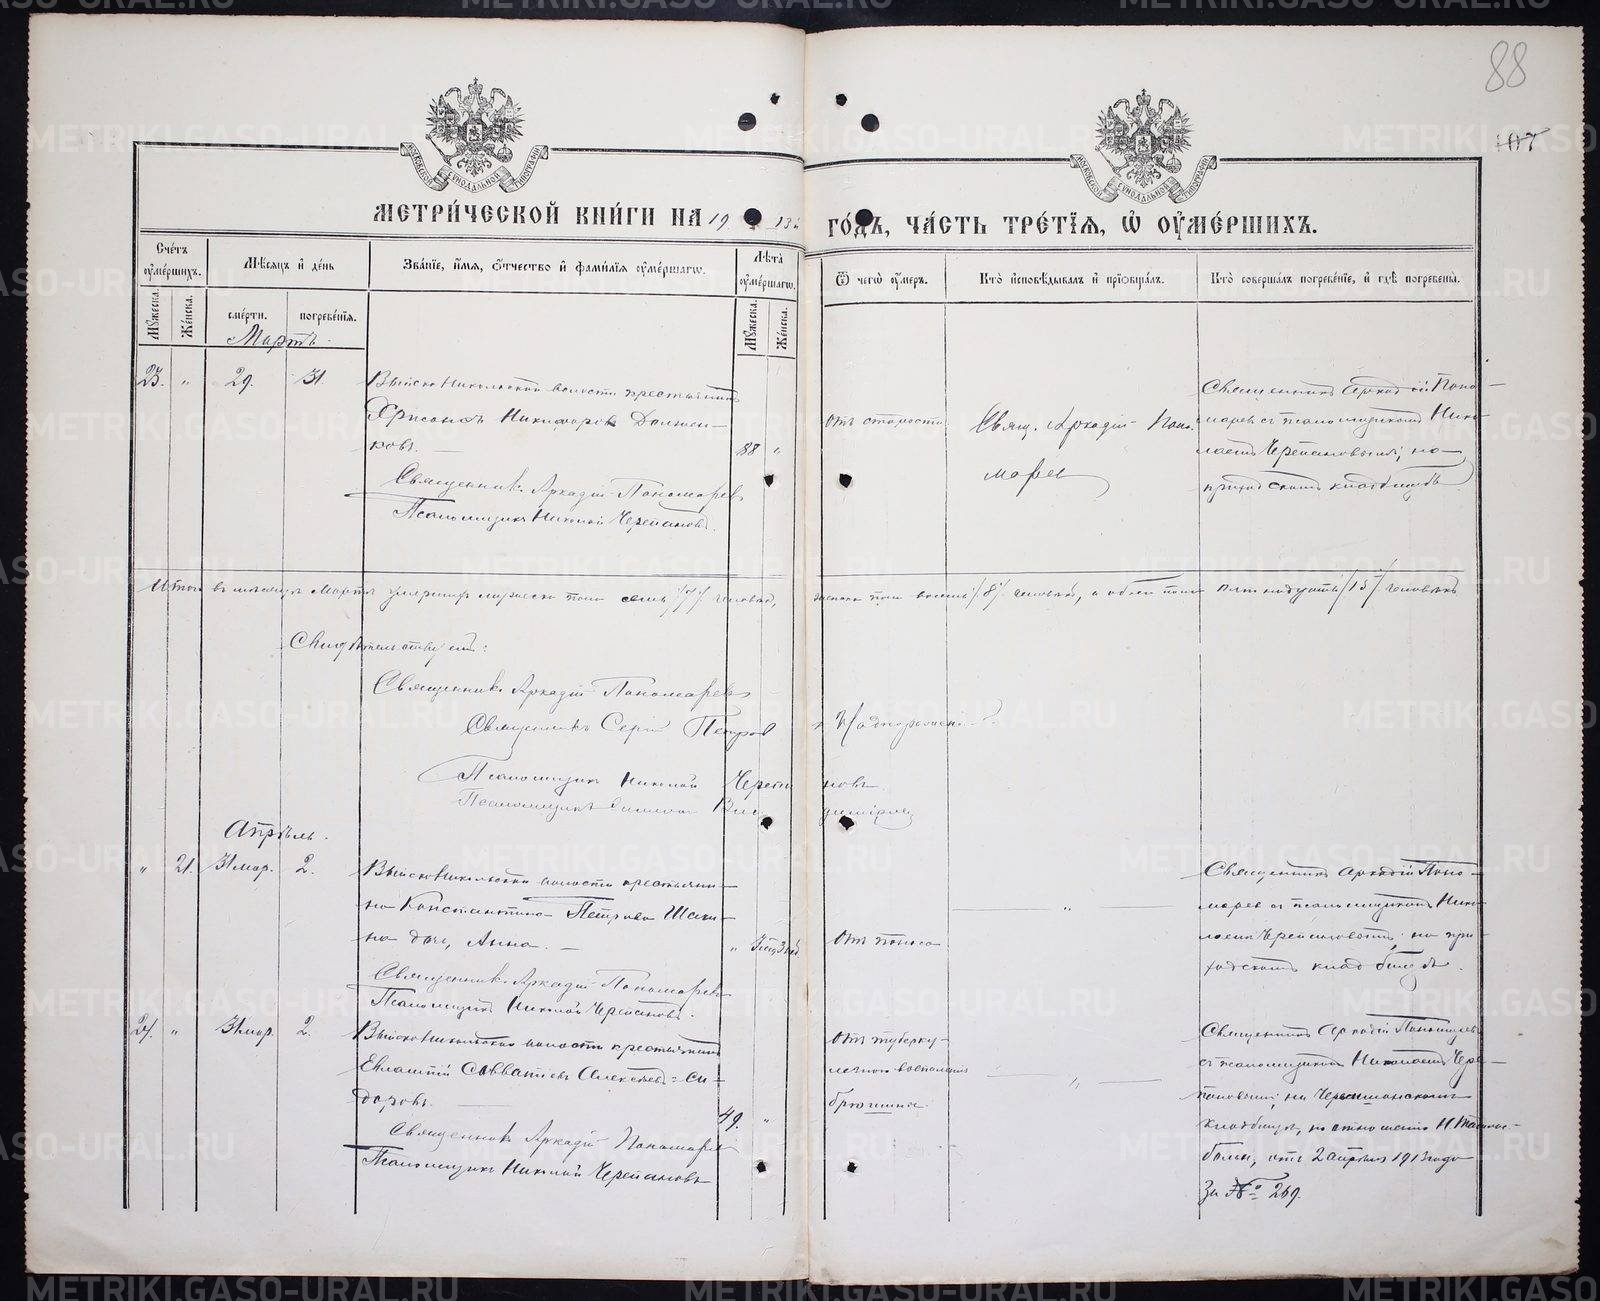 88
107
МОСКОВСКОЙ СУНОДАЛЬНОЙ ТИПОГРАФІИ
МОСКОВСКОЙ СУНОДАЛЬНОЙ ТИПОГРАФІИ
МЕТРИЧЕСКОЙ КНИГИ НА 1913 ГОДЪ, ЧАСТЬ ТРЕТІЯ, Ѿ ОУМЕРШИХЪ.
Счетъ оумершихъ. Мѣсяцъ и день Званіе, имя, отчество и фамилія оумершагѡ. Лѣта оумершагѡ. Ѿ чегѡ оумеръ. Кто исповѣдывалъ и пріобщалъ. Кто совершалъ погребеніе, и гдѣ погребены.
Мужеска. Женска. смерти. погребенія. Мужеска. Женска.
Мартъ.
23. " 29. 31. Выйско Никольской волости крестьянинъ
Хрисанфъ Никифоровъ Должен-
ковъ. 88 "
Священникъ Аркадій Пономаревъ
Псаломщикъ Николай Черепановъ.
отъ старости
Свящ. Аркадій Поно-
марев
Священникъ Аркадій Поно-
марев съ псаломщикомъ Нико-
лаемъ Черепановымъ; на
приходскомъ кладбищѣ
Итого въ мѣсяцѣ Мартѣ умерших мужеска пола семь /7/ человѣкъ, женска пола восемь /8/ человѣкъ, а обоего пола пятнадцать /15/ человѣкъ
Свидѣтельствуемъ:
Священникъ Аркадій Пономаревъ
Священникъ Сергій Петров
Псаломщикъ Николай Черепановъ
Псаломщикъ
Апрѣль.
" 21. 31 мар. 2. Выйско Никольской волости крестьяни-
на Константина Петрова Шеки-
на дочь, Анна. "
Священникъ Аркадій Пономаревъ
Псаломщикъ Николай Черепановъ.
отъ поноса
"
Священникъ Аркадій Поно-
марев съ псаломщикомъ Нико-
лаемъ Черепановымъ; на при-
ходскомъ кладбищѣ.
24. " 31 мар. 2. Выйско Никольской волости крестьянинъ
Евлампій Савватіевъ Алексѣевъ-Си-
доровъ. 49. "
Священникъ Аркадій Пономаревъ
Псаломщикъ Николай Черепановъ
отъ туберку-
лезного воспаленія
брюшины
"
Священникъ Аркадій Пономарев
съ псаломщикомъ Николаемъ Чере-
пановымъ; на
кладбищѣ, по отношенію
отъ 2 апрѣля 1913 года
За № 269.
METRIKI.GASO-URAL.RU